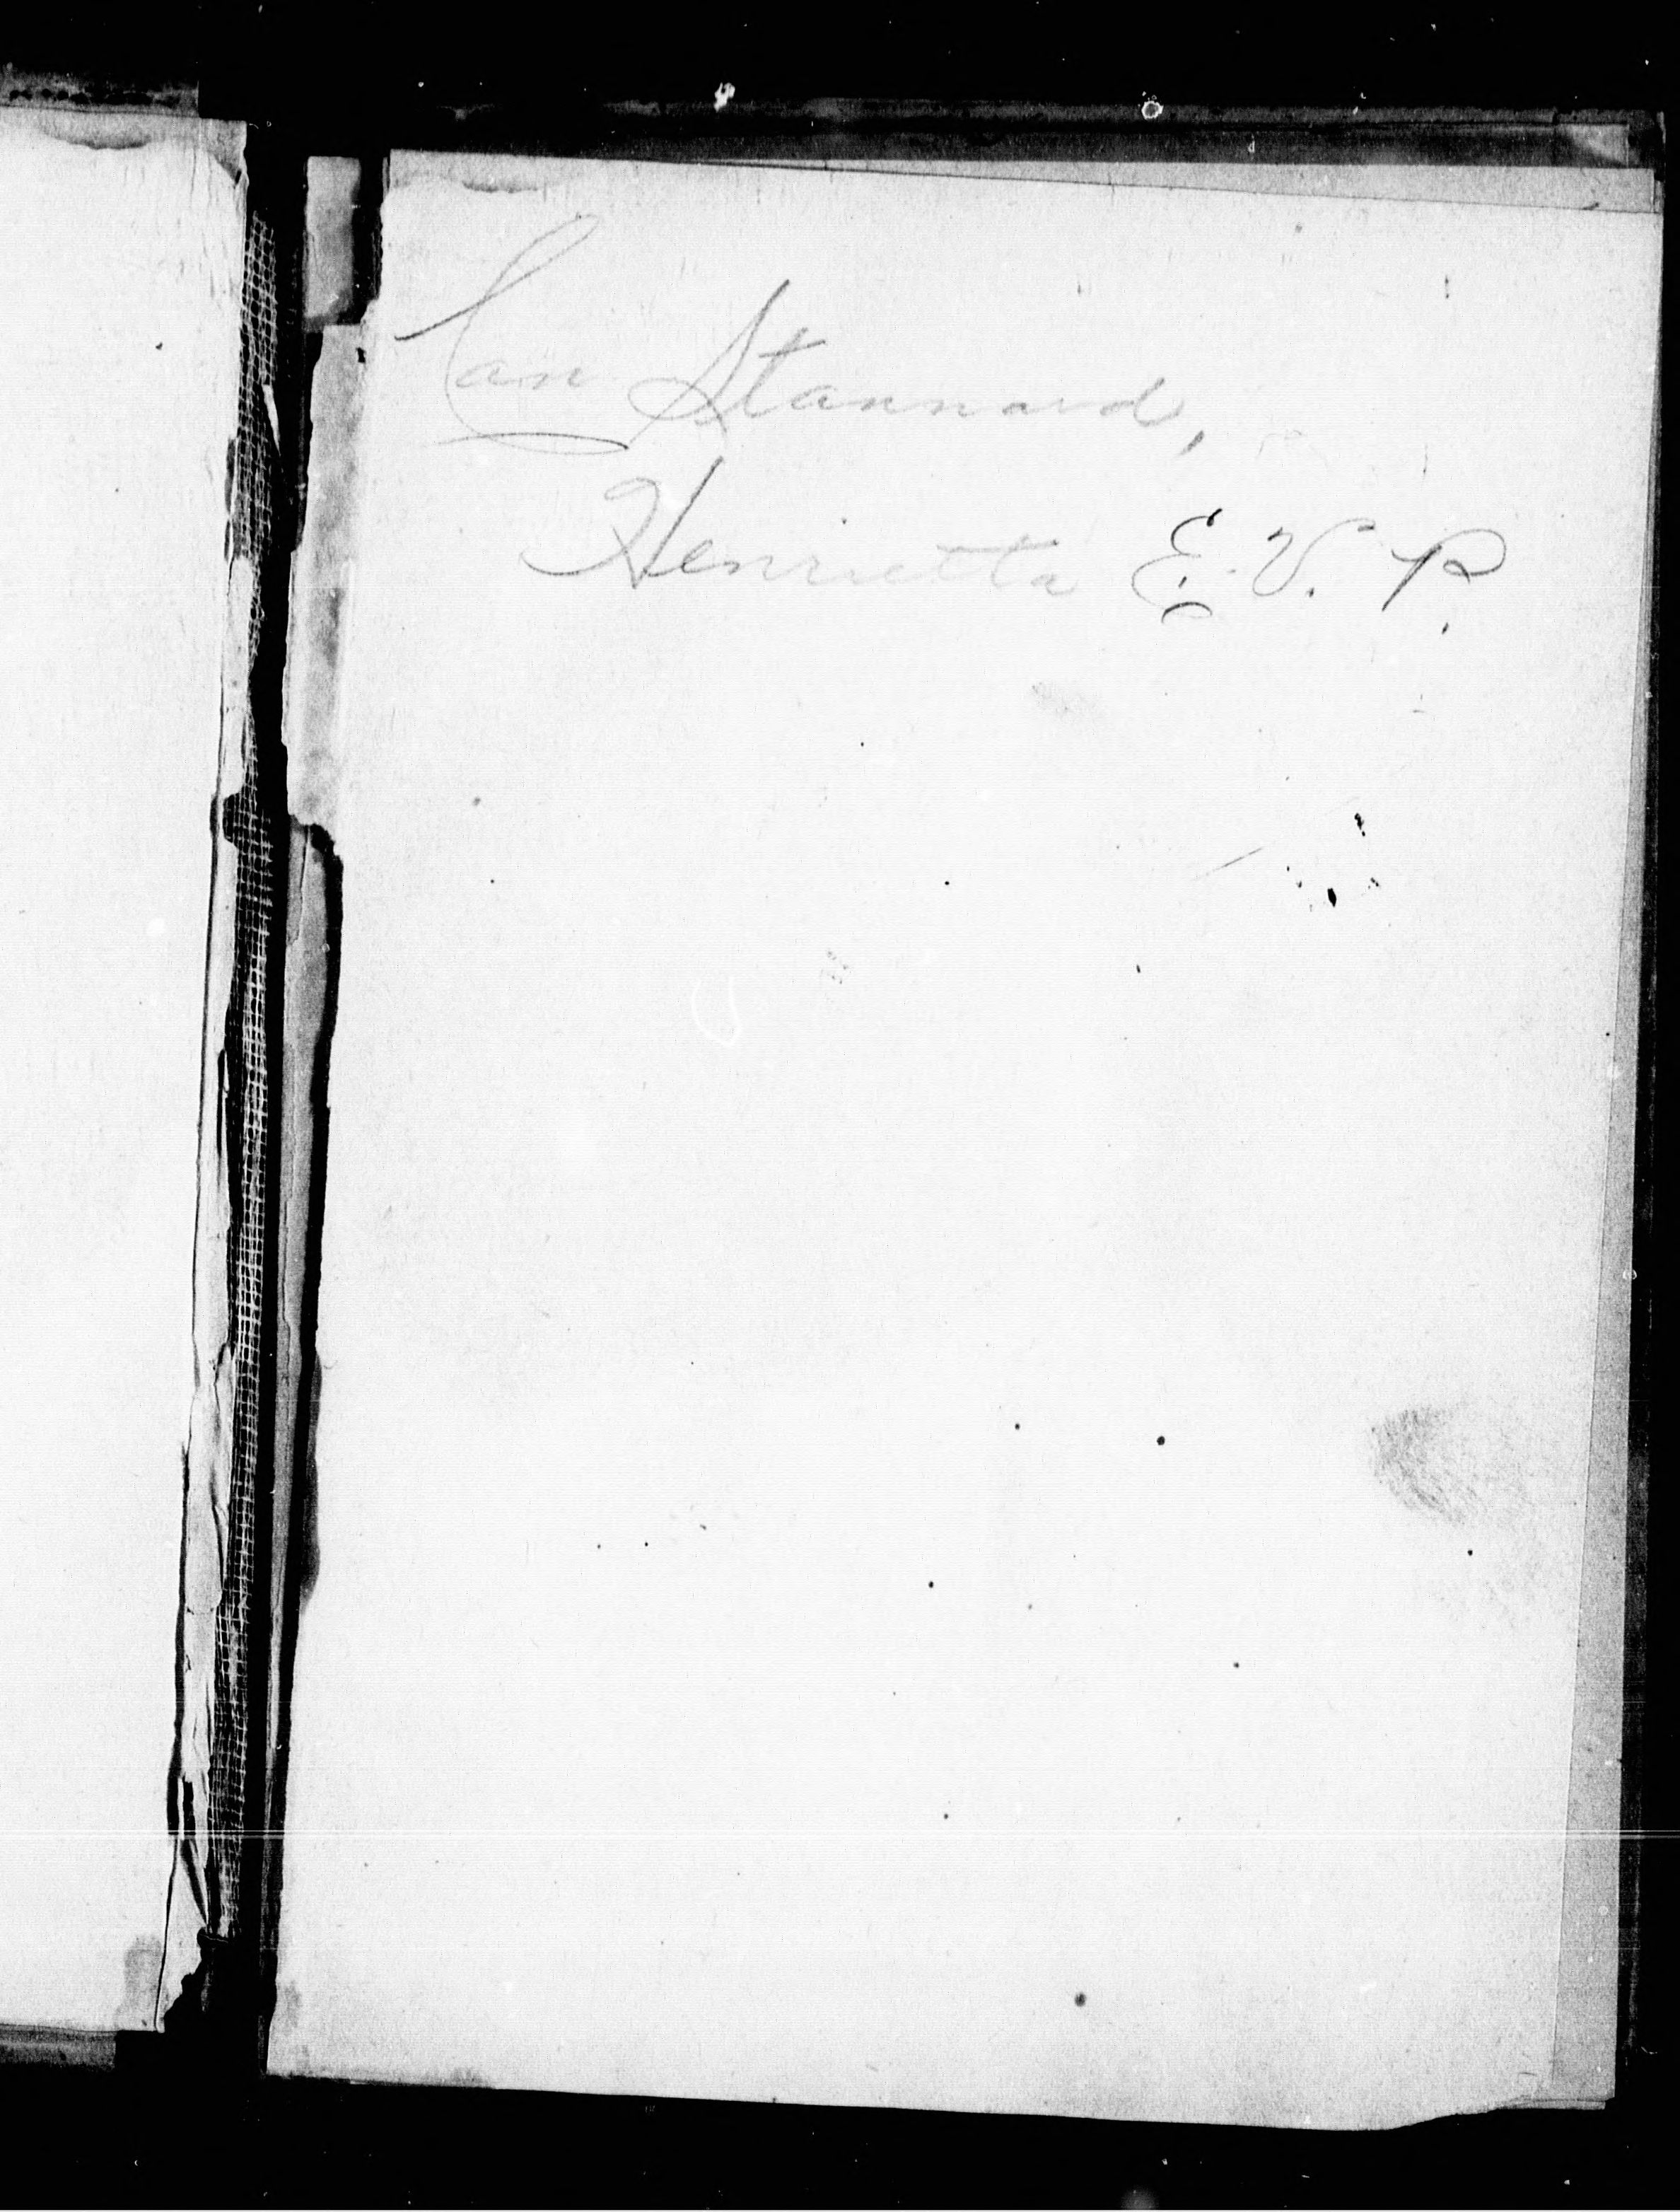 Can Stannard,
Henrietta E. V. P.